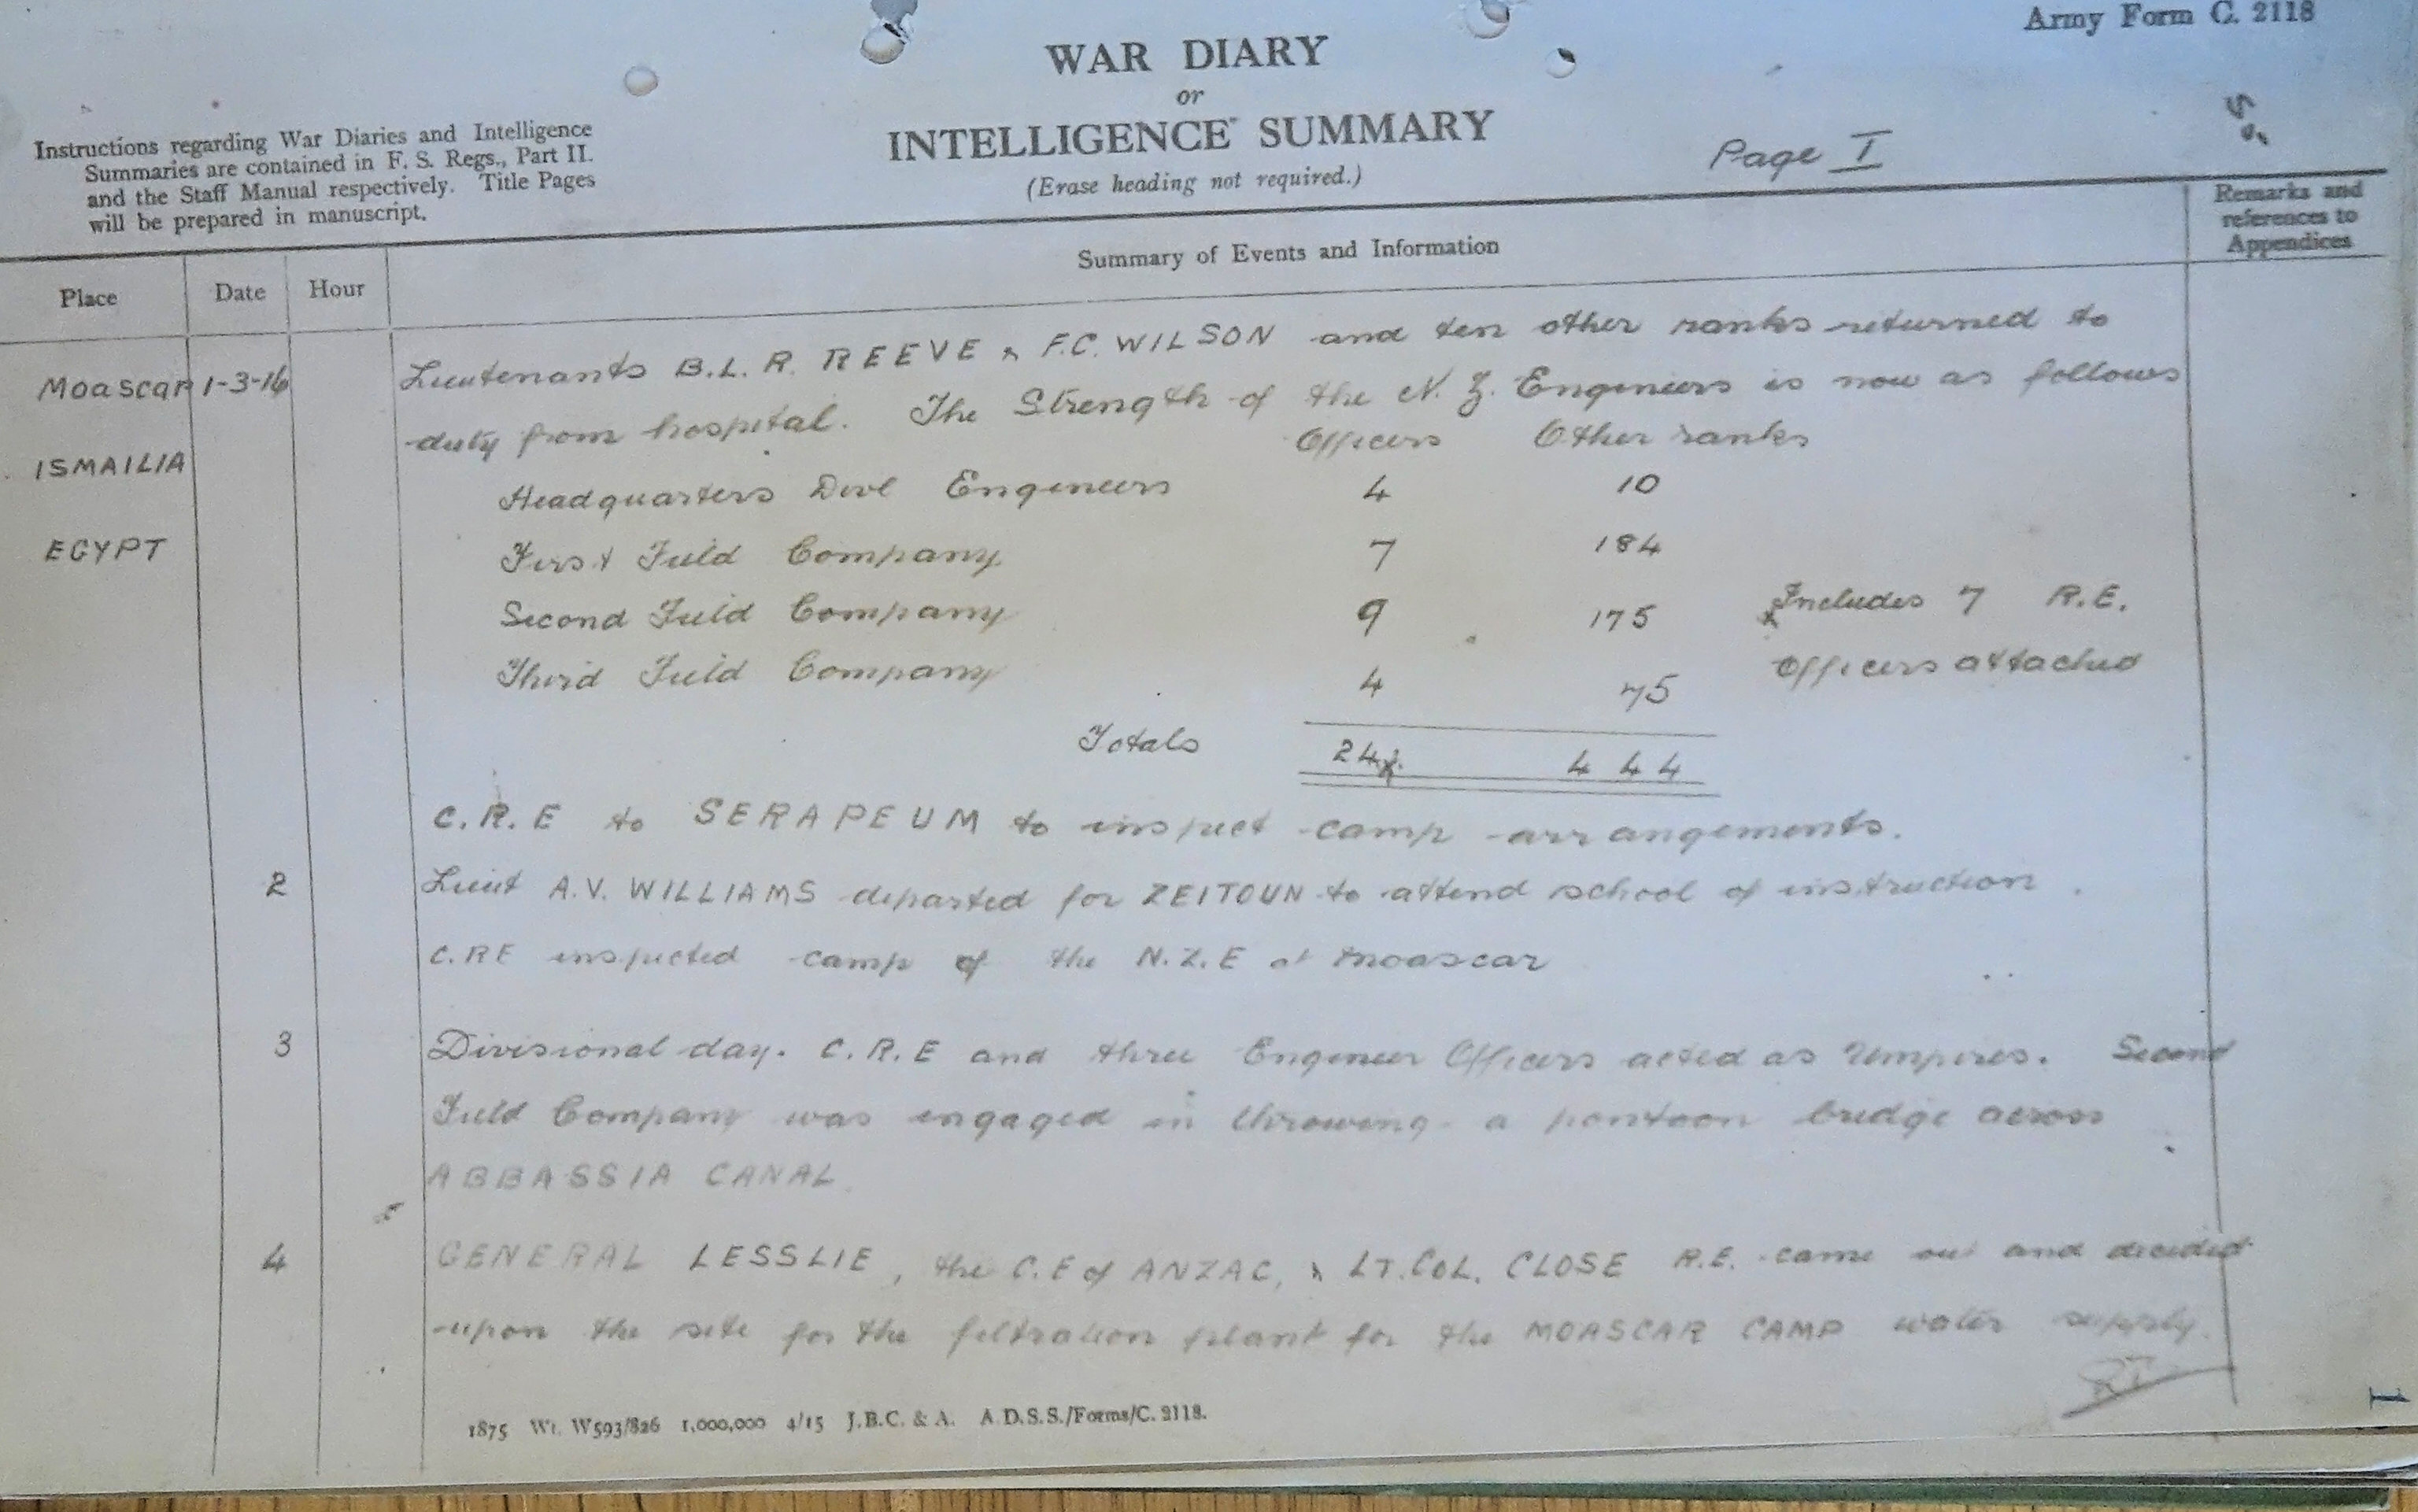 Army Form C. 2118
WAR DIARY
or
INTELLIGENCE SUMMARY
(Erase heading not required.)
Page I
Instructions regarding War Diaries and Intelligence
Summaries are contained in F. S. Regs., Part II.
and the Staff Manual respectively. Title Pages
will be prepared in manuscript.
Place Date Hour Summary of Events and Information Remarks and
references to
Appendices
Moascar 1-3-16 Lieutenants B.L.R. REEVE & F.C. WILSON and ten other ranks returned to
duty from hospital. The Strength of the N.Z. Engineers is now as follows
Officers Other ranks
ISMAILIA
Headquarters Divl Engineers 4 10
EGYPT
First Field Company 7 184
Second Field Company 9 175 x Includes 7 R.E.
Third Field Company 4 75 Officers attached
Totals 24x. 444
C.R.E to SERAPEUM to inspect camp arrangements.
2 Lieut A.V. WILLIAMS departed for ZEITOUN to attend school of instruction.
C.RE inspected camp of the N.Z.E at Moascar
3 Divisional day. C.R.E and three Engineer Officers acted as Umpires. Second
Field Company was engaged in throwing a pontoon bridge across
ABBASSIA CANAL.
4 GENERAL LESSLIE, the C.E of ANZAC, & LT.COL. CLOSE R.E. came out and decided
upon the site for the filtration plant for the MOASCAR CAMP water supply.
1875 Wt. W593/826 1,000,000 4/15 J.B.C. & A. A.D.S.S./Forms/C. 2118.